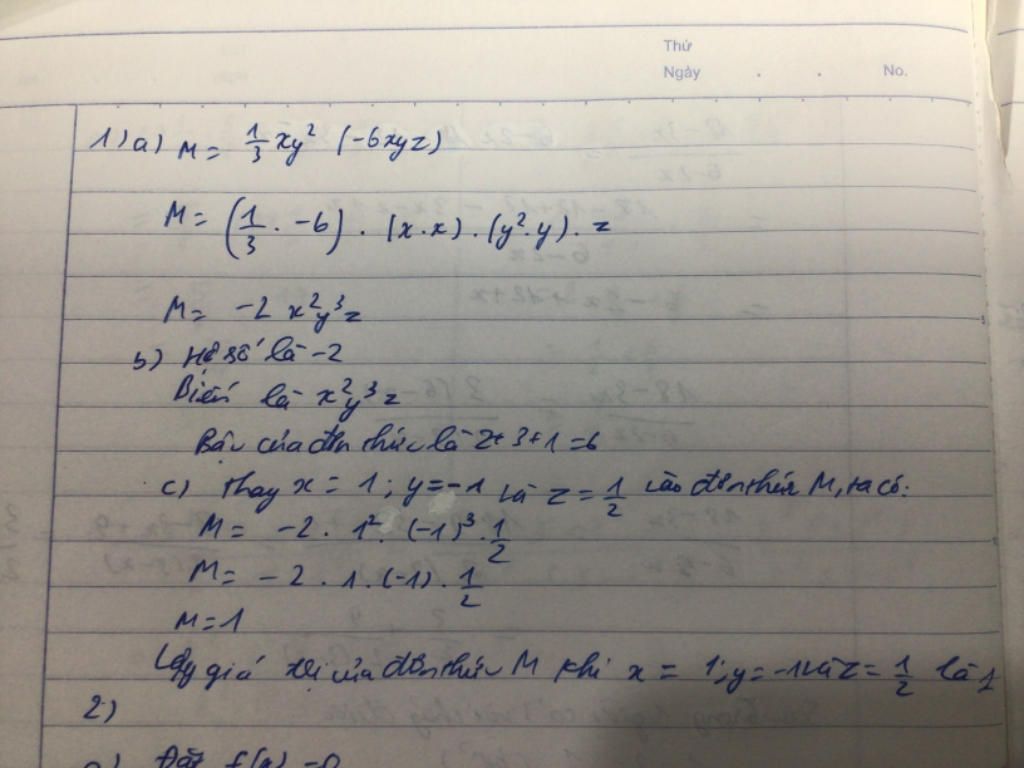 Thứ
Ngày . . No.
1) a) M = 1/3 xy² (-6xyz)
M = (1/3 . -6) . (x.x) . (y².y) . z
M = -2 x²y³z
b) Hệ số là -2
Biến là x²y³z
Bậc của đơn thức là 2+3+1=6
c) Thay x = 1; y=-1 và z = 1/2 vào đơn thức M, ta có:
M = -2 . 1² . (-1)³ . 1/2
M = -2 . 1 . (-1) . 1/2
M = 1
Vậy giá trị của đơn thức M khi x = 1; y = -1 và z = 1/2 là 1
2)
a) Đặt f(x) = 0